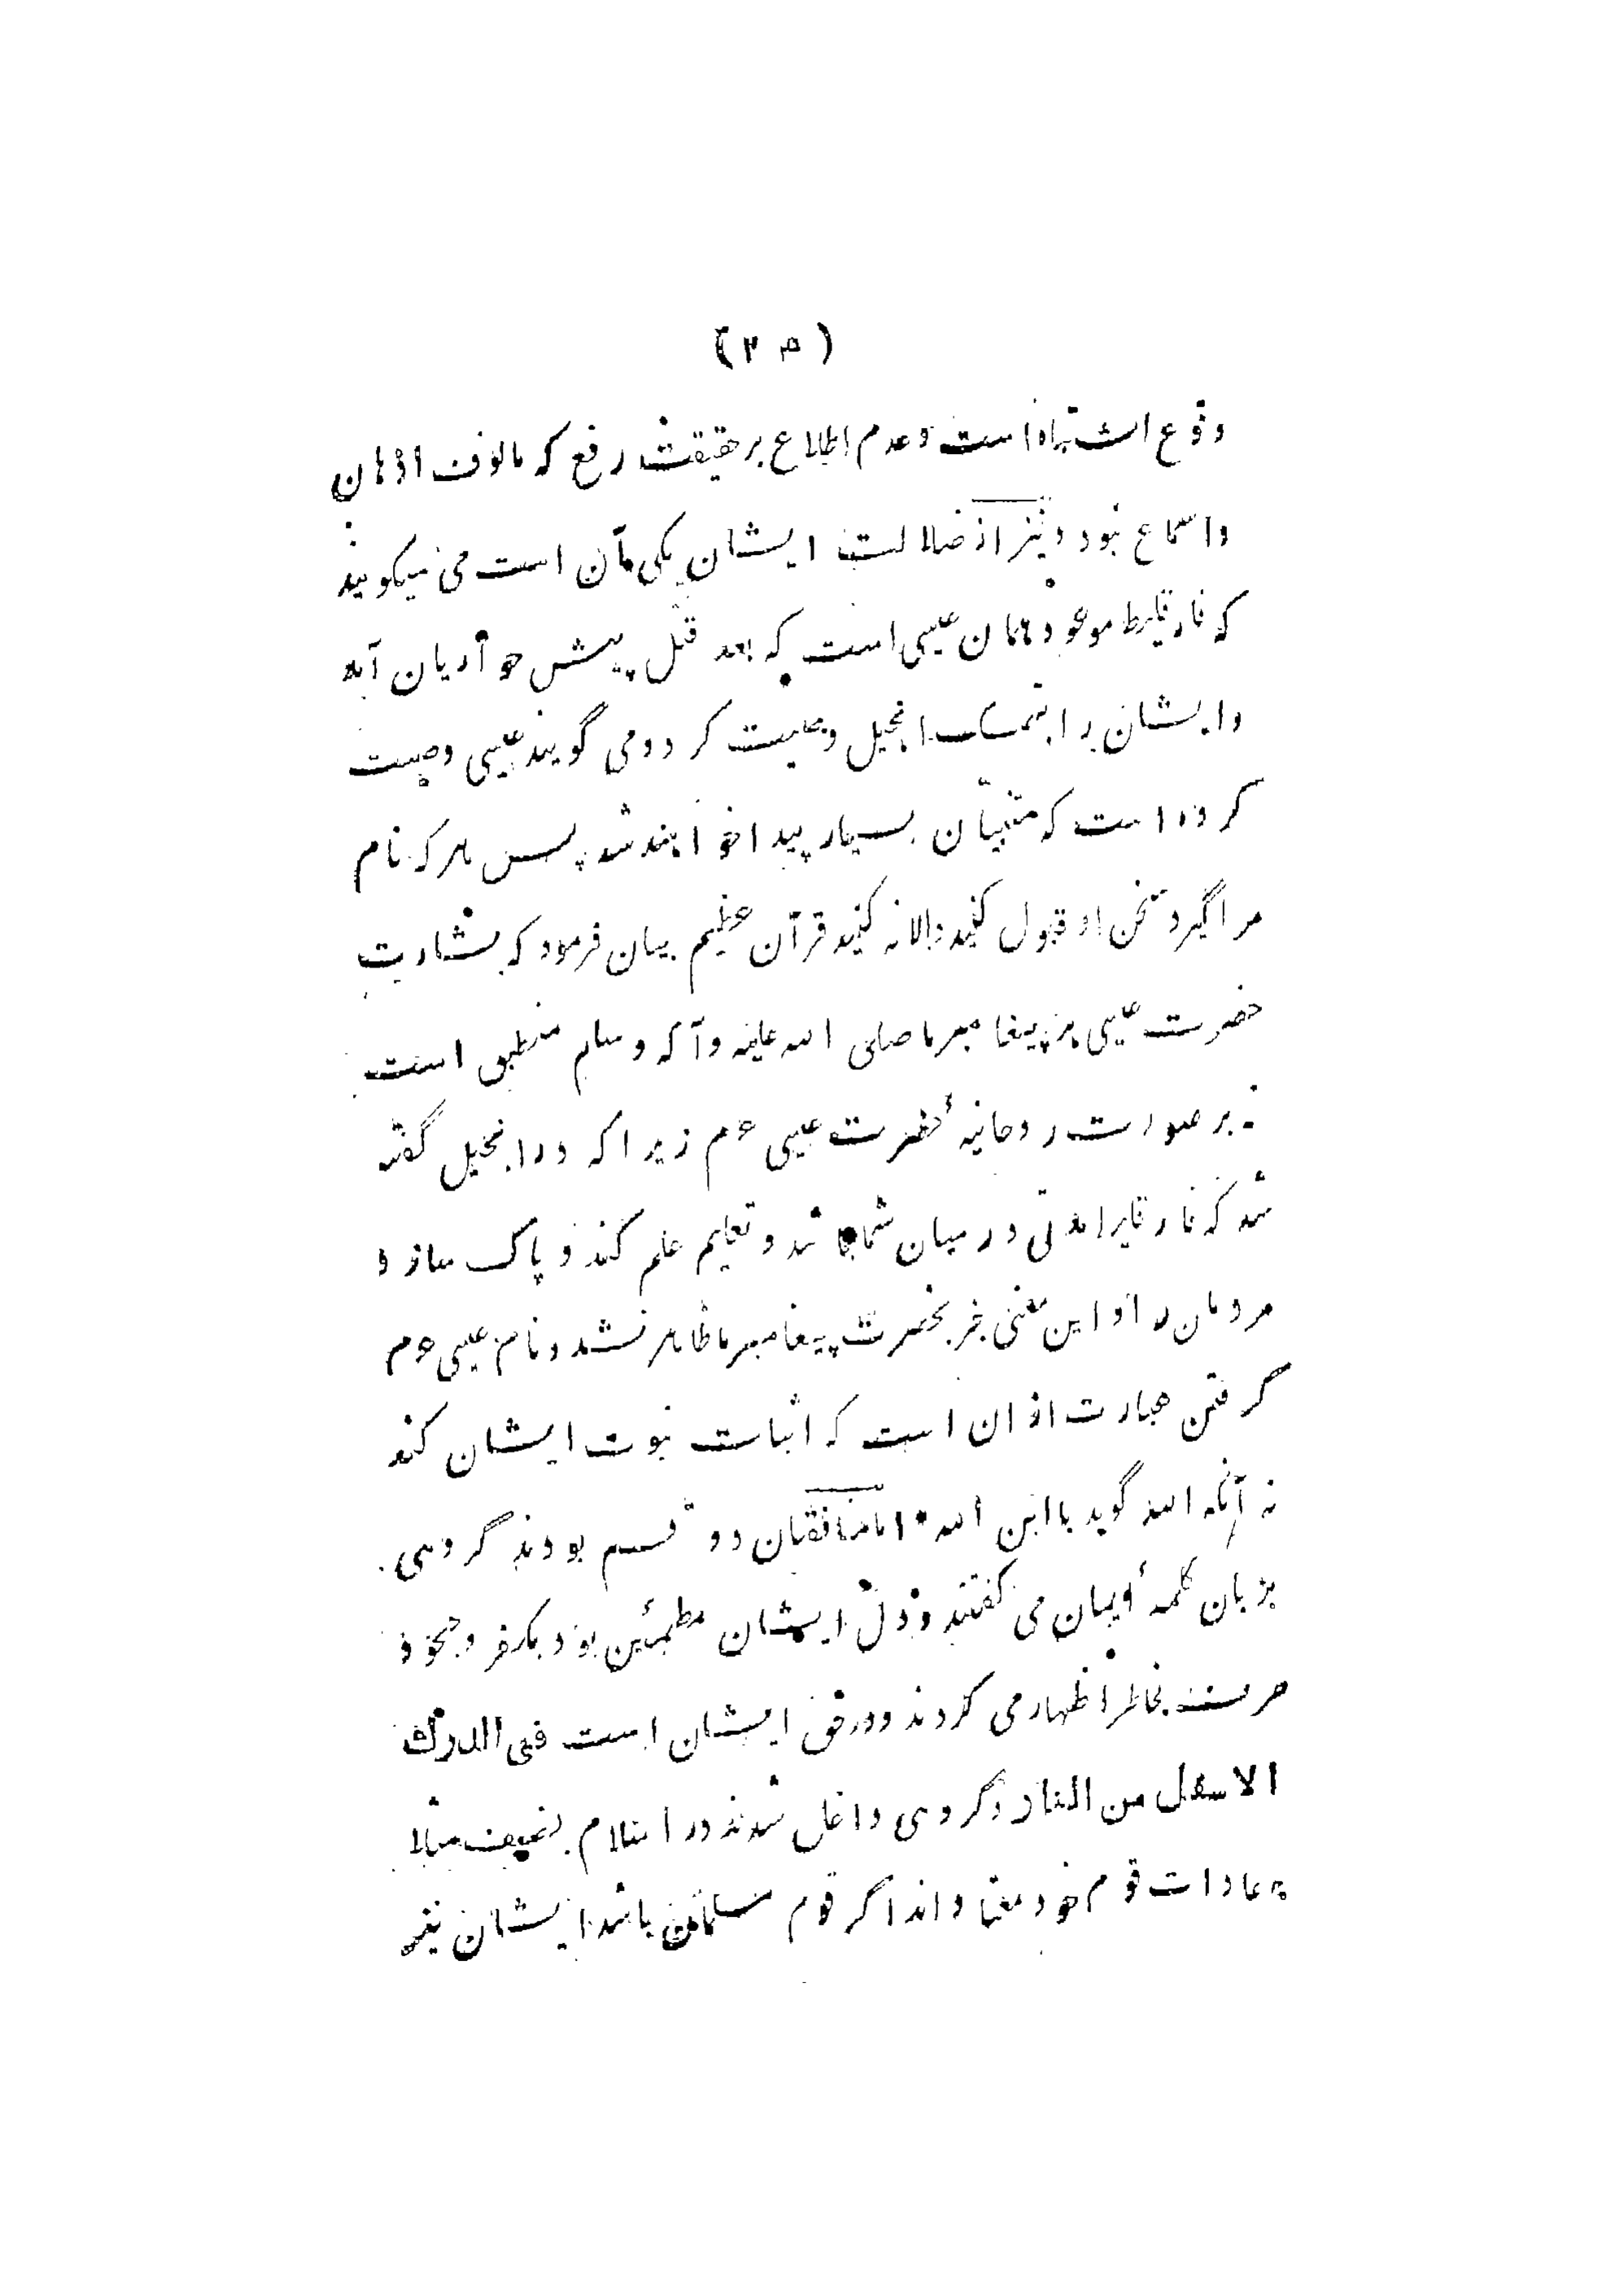 (۲۵)
وقوع اشتباه است وعدم اطلاع بر حقیقت رفع که مالوف اذهان
واسماع نبود و نیز از ضلالت ایشان یکی آن است می میگویند
که فارقلیط موعود همان عیسی است که بعد قتل پیش حواریان آمد
وایشان را بتمسک انجیل وصیت کرد و می گویند عیسی وصیت
کرده است که متنبیان بسیار پیدا خواهند شد پس هر که نام
مرا گیرد سخن او قبول کنید والا نه کنید قرآن عظیم بیان فرمود که بشارت
حضرت عیسی بر پیغامبر ما صلی الله علیه وآله وسلم منطبق است
نه بر صورت روحانیهٔ حضرت عیسی ۴م زیرا که در انجیل گفته
شد که فارقلیط مدتی در میان شما باشد و تعلیم علم کند و پاک سازد
مردمان را و این معنی بغیر حضرت پیغامبر ما ظاهر نشد و نام عیسی ۴م
گرفتن عبارت از ان است که اثبات نبوت ایشان کند
نه آنکه الله گوید یا ابن الله * اما منافقان دو قسم بودند گروهی
بزبان کلمهٔ ایمان می گفتند و دل ایشان مطمئن بود بکفر و جحود
صرف بخاطر اظهار می کردند و در حق ایشان است فی الدرک
الاسفل من النار و گروهی داخل شدند در اسلام بضعف مثلا
به عادات قوم خود معتاد اند اگر قوم مسلمان باشد ایشان نیز